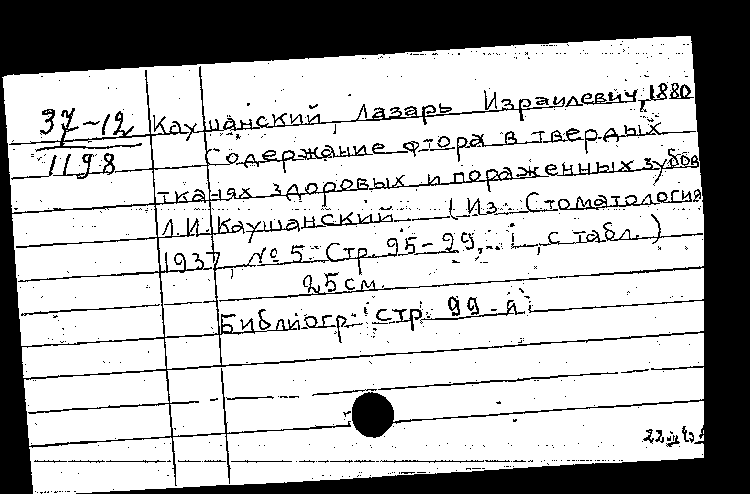 37-12
1198
Каушанский, Лазарь Израилевич, 1880
Содержание фтора в твердых
тканях здоровых и пораженных зубов
Л.И. Каушанский. (Из: Стоматология
1937, № 5. Стр. 95-99, с табл.)
25 см.
Библиогр: стр. 99-я
22